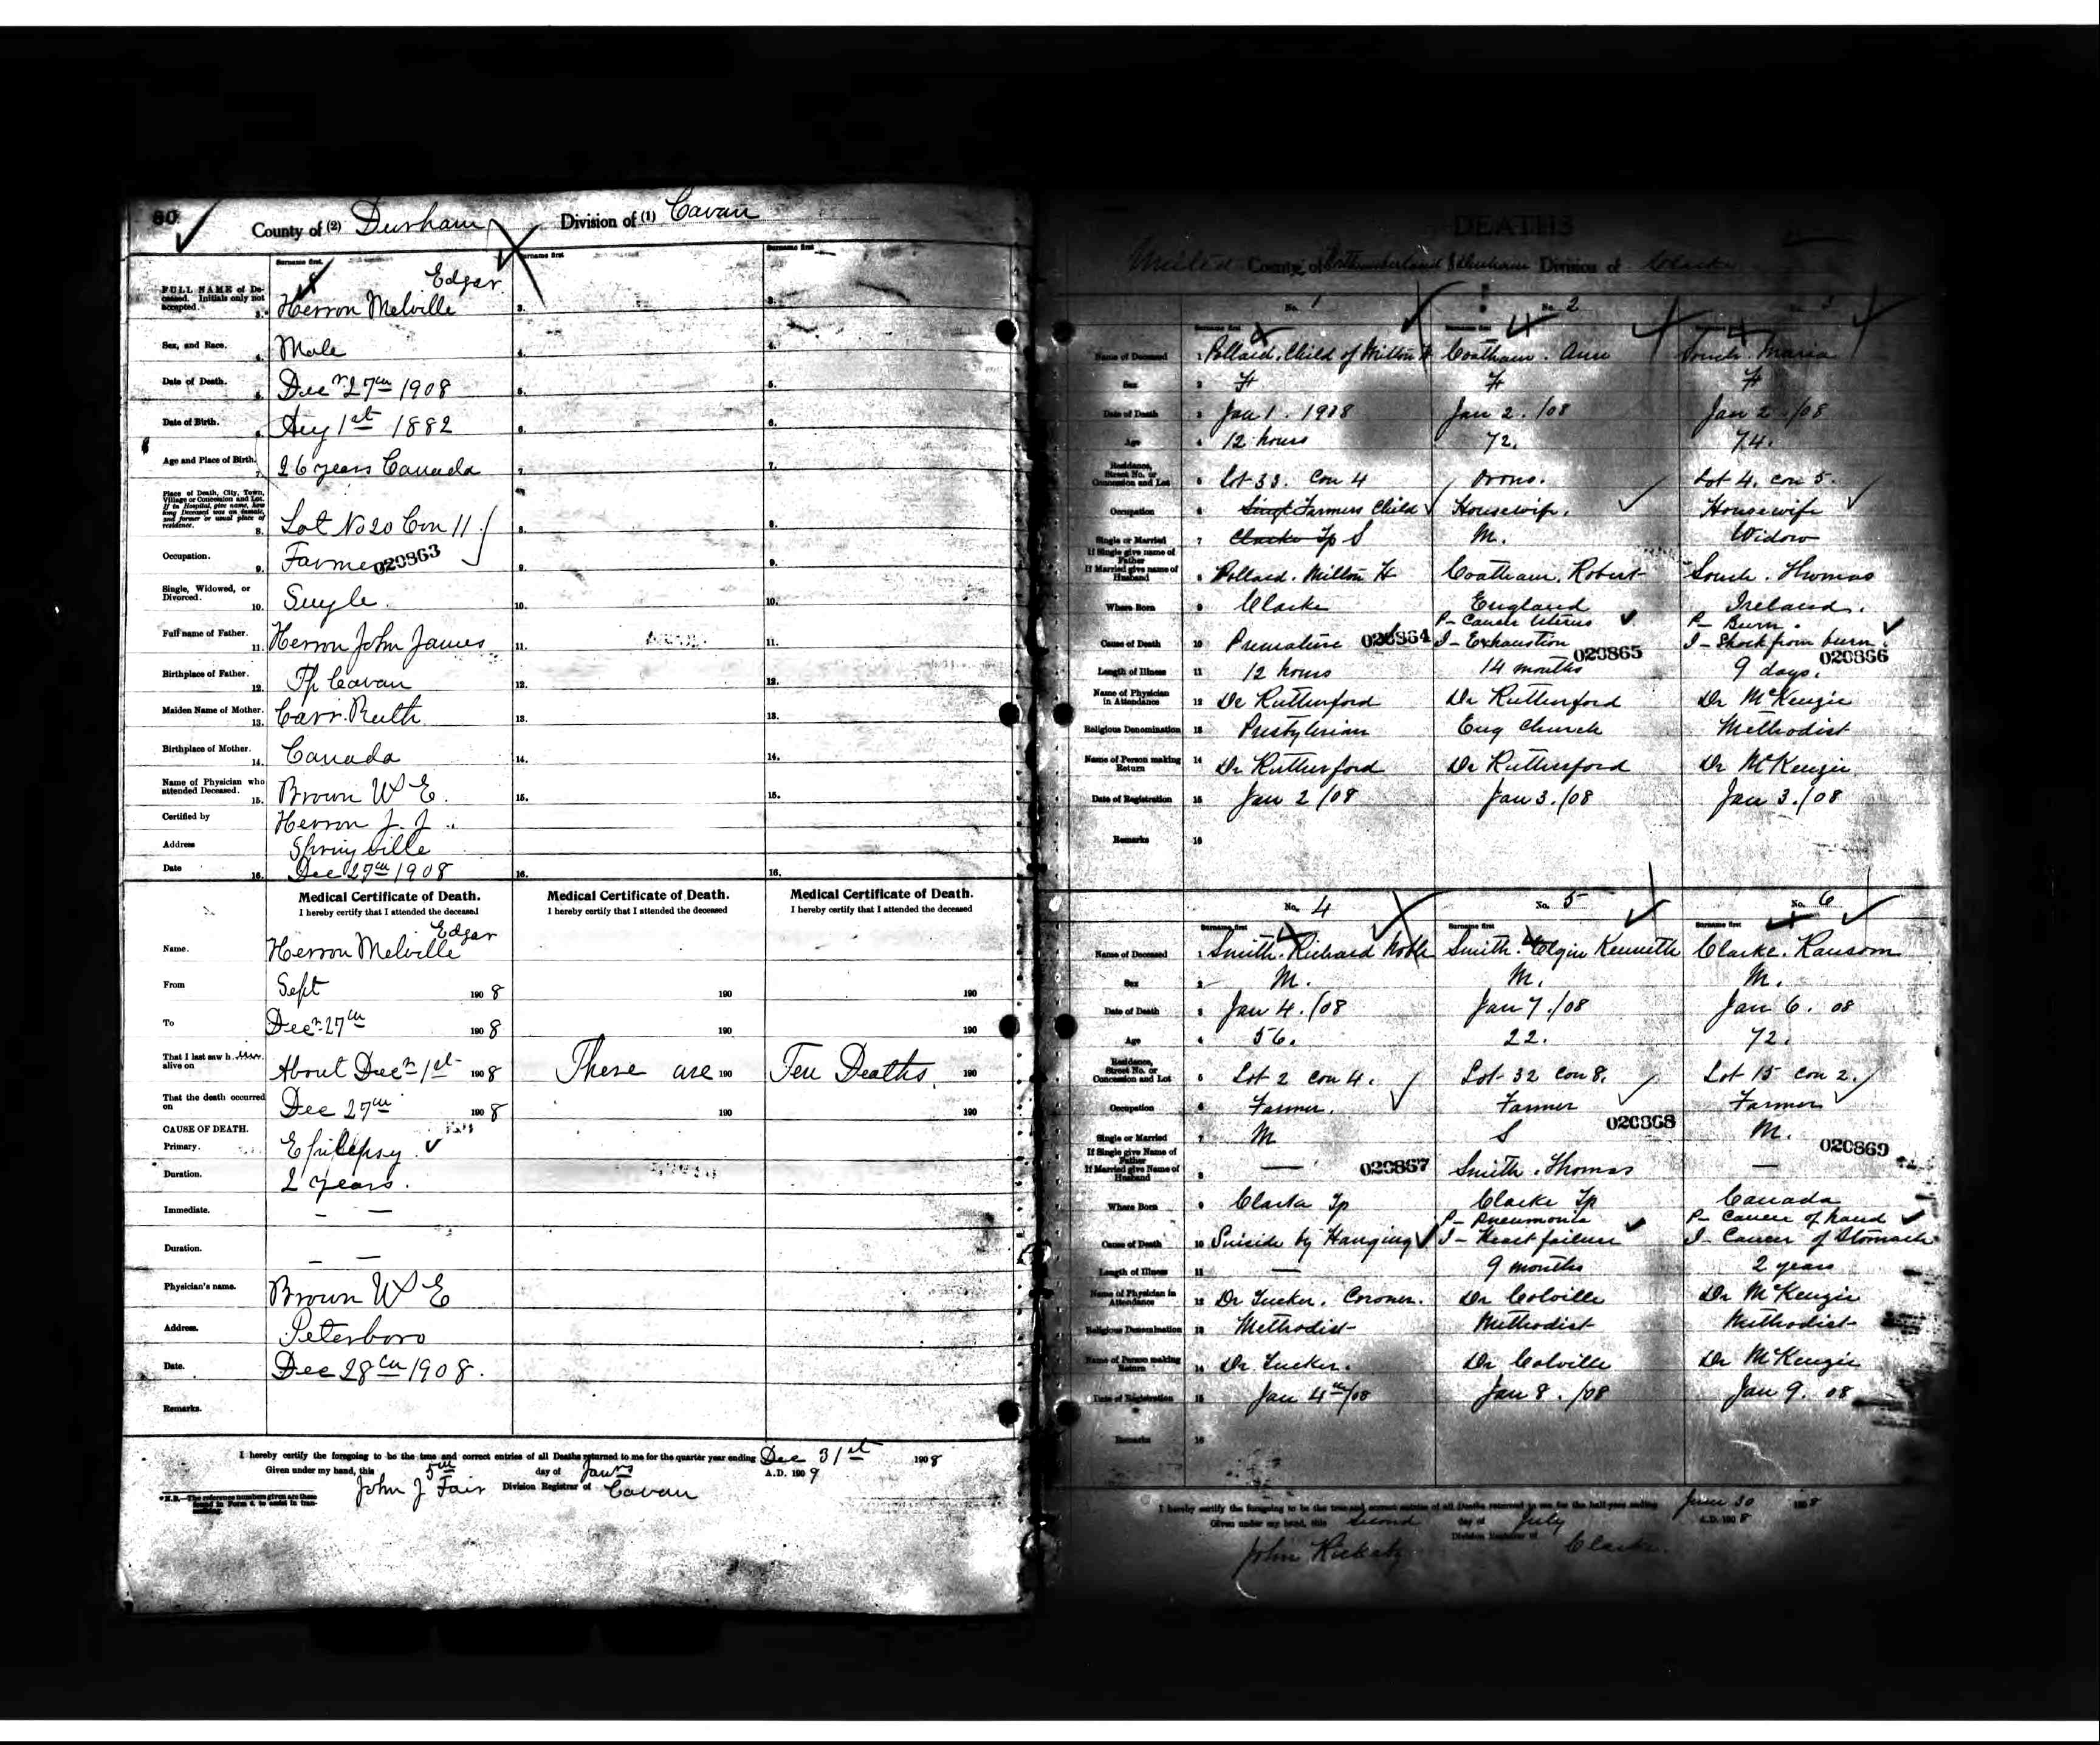 60
County of (2) Durham Division of (1) Cavan
Surname first. Surname first Surname first
Edgar
FULL NAME of Deceased. Initials only not accepted. 3. Herron Melville 3. 3.
Sex, and Race. 4. Male 4. 4.
Date of Death. 5. Decr 27th 1908 5. 5.
Date of Birth. 6. Aug 1st 1882 6. 6.
Age and Place of Birth. 7. 26 years Canada 7. 7.
Place of Death, City, Town, Village or Concession and Lot. If in Hospital, give name, how long Deceased was an inmate, and former or usual place of residence. 8. Lot No 20 Con 11 8. 8.
Occupation. 9. Farmer 020863 9. 9.
Single, Widowed, or Divorced. 10. Single 10. 10.
Full name of Father. 11. Herron John James 11. 11.
Birthplace of Father. 12. Tp Cavan 12. 12.
Maiden Name of Mother. 13. Carr. Ruth 13. 13.
Birthplace of Mother. 14. Canada 14. 14.
Name of Physician who attended Deceased. 15. Brown W E. 15. 15.
Certified by Herron J. J.
Address Springville
Date 16. Dec 29th 1908 16. 16.
Medical Certificate of Death. Medical Certificate of Death. Medical Certificate of Death.
I hereby certify that I attended the deceased I hereby certify that I attended the deceased I hereby certify that I attended the deceased
Edgar
Name. Herron Melville
From Sept 190 8 190 190
To Decr 27th 190 8 190 190
That I last saw h im alive on About Decr 1st 190 8 There are 190 Ten Deaths 190
That the death occurred on Dec 27th 190 8 190 190
CAUSE OF DEATH.
Primary. Epilepsy
Duration. 2 years.
Immediate. — —
Duration. — —
Physician's name. Brown W E
Address. Peterboro
Date. Dec 28th 1908.
Remarks.
I hereby certify the foregoing to be the true and correct entries of all Deaths returned to me for the quarter year ending Dec 31st 190 8
Given under my hand, this 5th day of Jany A.D. 190 9
John J Fair Division Registrar of Cavan
* N.B.—The reference numbers given are those found in Form 6, to assist in transcribing.
DEATHS
United County of Northumberland & Durham Division of Clarke
No. 1 No. 2 No. 3
Surname first Surname first Surname first
Name of Deceased 1 Pollard. Child of Milton H Coatham. Ann Souch. Maria
Sex 2 F F F
Date of Death 3 Jan 1. 1908 Jan 2. /08 Jan 2 /08
Age 4 12 hours 72. 74.
Residence, Street No. or Concession and Lot 5 Lot 33. Con 4 Orono. Lot 4. con 5.
Occupation 6 Farmers Child Housewife. Housewife
Single or Married 7 Clarke Tp S M. Widow
If Single give name of Father If Married give name of Husband 8 Pollard. Milton H Coatham. Robert Souch. Thomas
Where Born 9 Clarke England Ireland.
P— Cancer Uterus P— Burn.
Cause of Death 10 Premature 020864 I — Exhaustion 020865 I — Shock from burn. 020866
Length of Illness 11 12 hours 14 months 9 days.
Name of Physician in Attendance 12 Dr Rutherford Dr Rutherford Dr McKenzie
Religious Denomination 13 Presbyterian Eng Church Methodist
Name of Person making Return 14 Dr Rutherford Dr Rutherford Dr McKenzie
Date of Registration 15 Jan 2 /08 Jan 3. /08 Jan 3. /08
Remarks 16
No. 4 No. 5 No. 6
Surname first Surname first Surname first
Name of Deceased 1 Smith. Richard Noble Smith. Elgin Kenneth Clarke. Ransom
Sex 2 M. M. M.
Date of Death 3 Jan 4. /08 Jan 7. /08 Jan 6. 08
Age 4 56. 22. 72.
Residence, Street No. or Concession and Lot 5 Lot 2 con 4. Lot 32 con 8. Lot 15 con 2.
Occupation 6 Farmer. Farmer 020868 Farmer
Single or Married 7 M S M. 020869
If Single give Name of Father If Married give Name of Husband 8 — 020867 Smith. Thomas —
Where Born 9 Clarke Tp Clarke Tp Canada
P— Pneumonia P— Cancer of hand
Cause of Death 10 Suiside by Hanging I — Heart failure I — Cancer of Stomach
Length of Illness 11 — 9 months 2 years
Name of Physician in Attendance 12 Dr Tucker. Coroner. Dr Colville Dr McKenzie
Religious Denomination 13 Methodist Methodist Methodist
Name of Person making Return 14 Dr Tucker. Dr Colville Dr McKenzie
Date of Registration 15 Jan 4th/08 Jan 8. /08 Jan 9. 08
Remarks 16
I hereby certify the foregoing to be the true and correct entries of all Deaths returned to me for the half year ending June 30 190 8
Given under my hand, this Second day of July A.D. 190 8
John Division Registrar of Clarke.